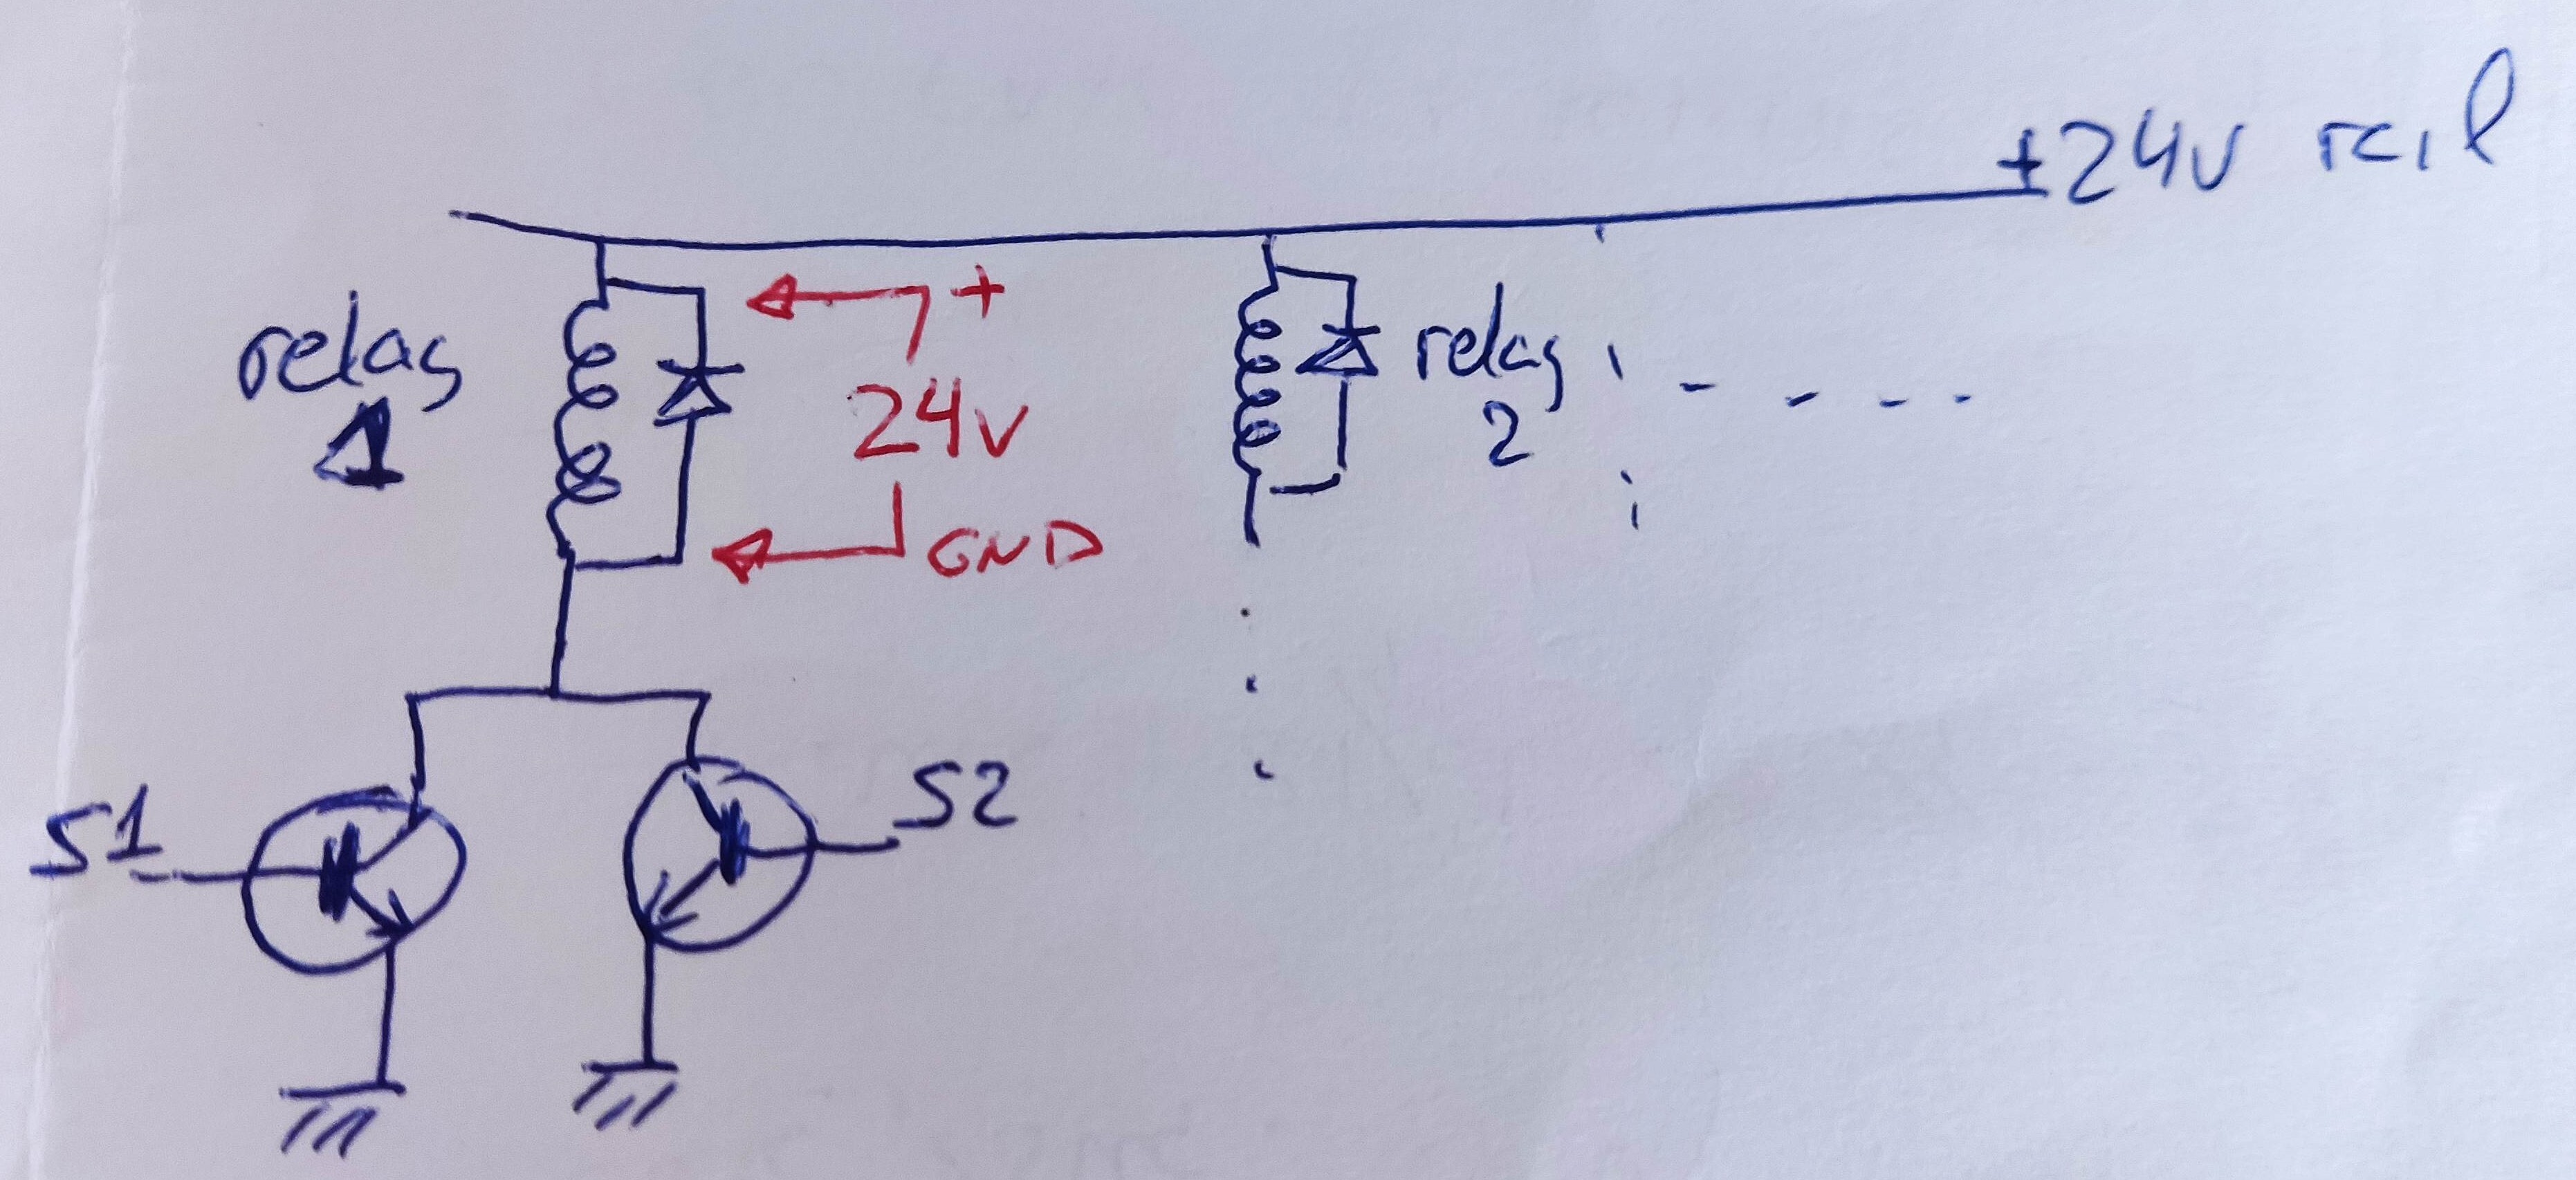 +24v rail
+
relay
1
24v
relay
2
GND
S1
S2